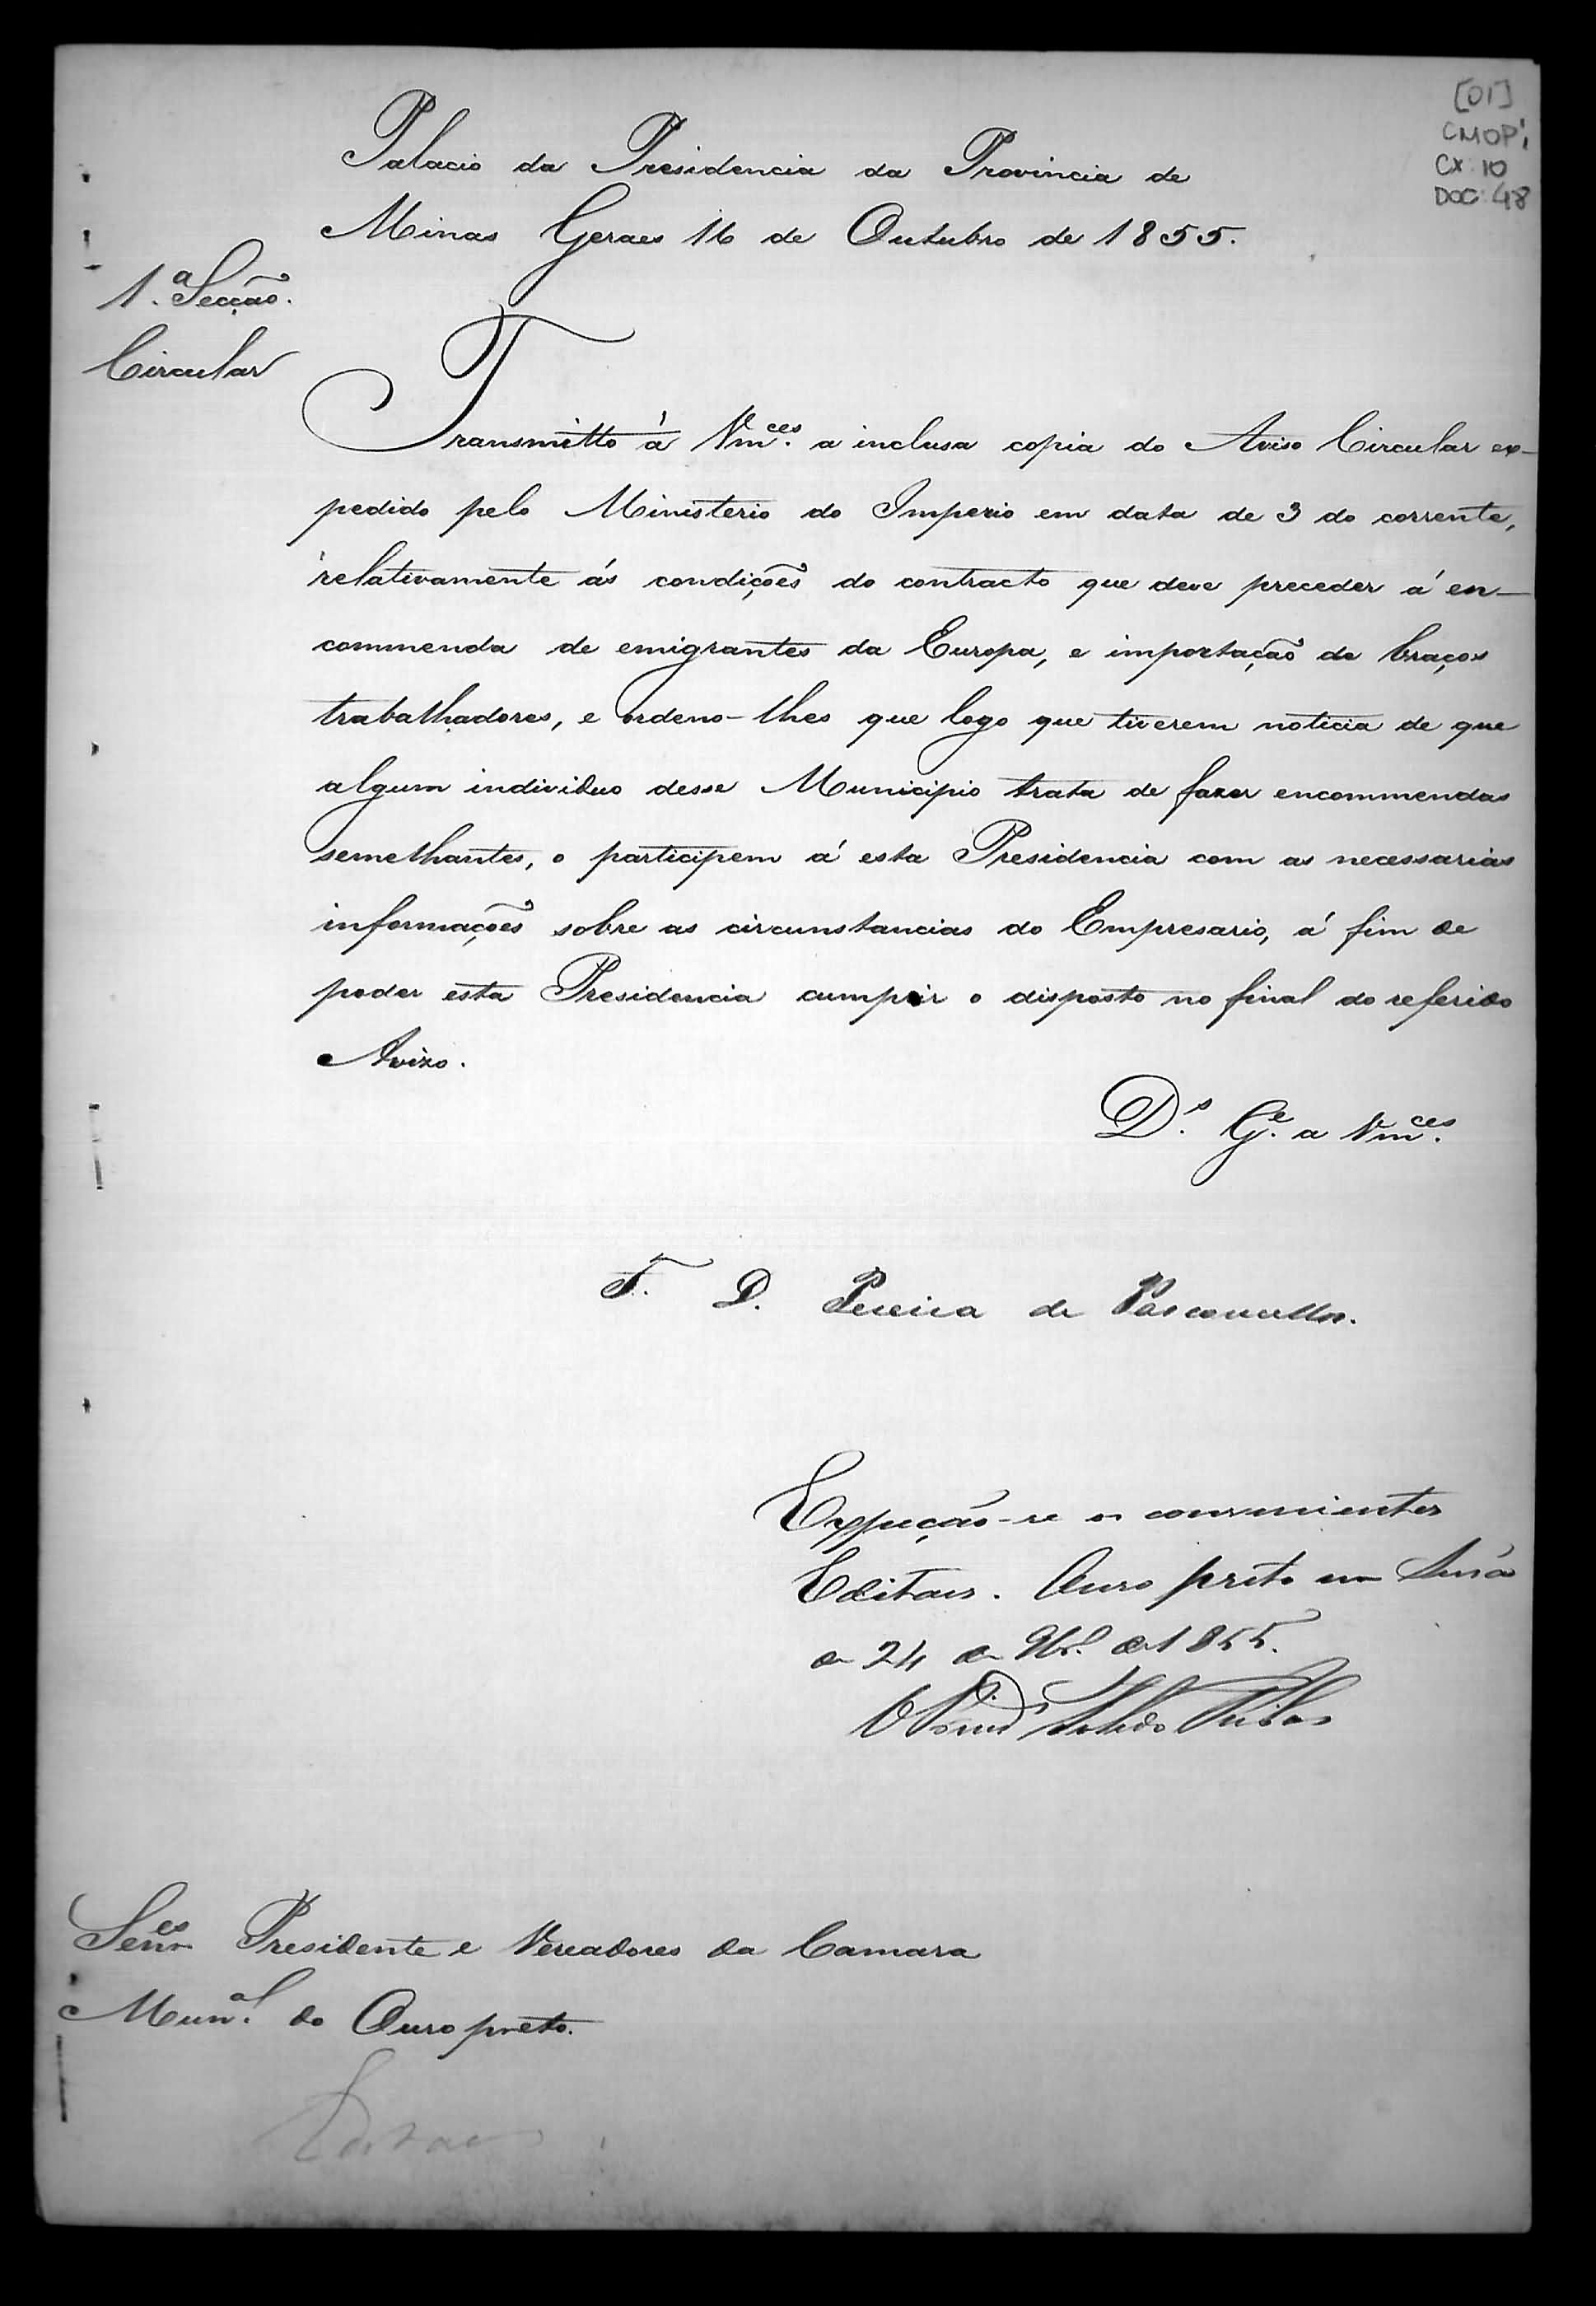 [01]
CMOP
CX: 10
DOC: 48
Palacio da Presidencia da Provincia de
Minas Geraes 16 de Outubro de 1855.
1.ª Secção.
Circular
Transmitto á Vm.ces a inclusa copia do Aviso Circular ex-
pedido pelo Ministerio do Imperio em data de 3 do corrente,
relativamente ás condições do contracto que deve preceder á en-
commenda de emigrantes da Europa, e importação de braços
trabalhadores, e ordeno-lhes que logo que tiverem noticia de que
algum individuo desse Municipio trata de fazer encommendas
semelhantes, o participem á esta Presidencia com as necessarias
informações sobre as circunstancias do Empresario, á fim de
poder esta Presidencia cumprir o disposto no final do referido
Avizo.
D.s G.e a Vm.ces
F. D. Pereira de Vasconcellos.
Expeção-se os convenientes
Editaes. Ouro preto em
de 24 de de 1855.
Senres Presidente e Vereadores da Camara
Mun.al do Ouro preto.
Editaes